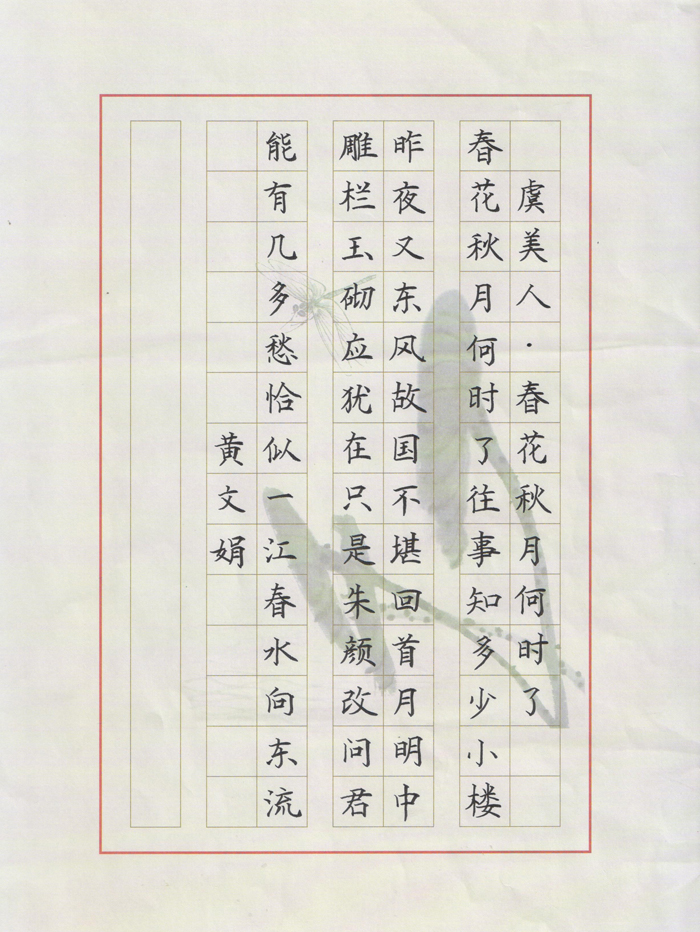 虞美人·春花秋月何时了
春花秋月何时了往事知多少小楼
昨夜又东风故国不堪回首月明中
雕栏玉砌应犹在只是朱颜改问君
能有几多愁恰似一江春水向东流
黄文娟